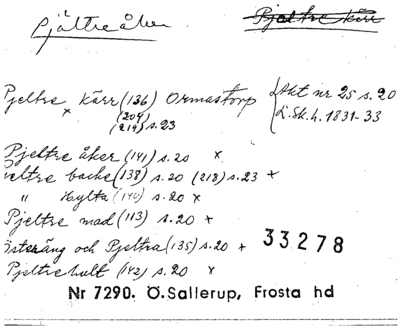 Pjältre åker
Pjeltre kärr
Pjeltre kärr (136) Ormastorp { Akt nr 25 s. 20
x (204) L. Sk. h. 1831-33
(219) s. 23
Pjeltre åker (141) s. 20 x
eltre backe (138) s. 20 (218) s. 23 +
" Hylta (140) s. 20 x
Pjeltre mad (113) s. 20 +
österäng och Pjeltra (135) s. 20 + 33278
Pjeltrehult (142) s. 20 x
Nr 7290. Ö. Sallerup, Frosta hd